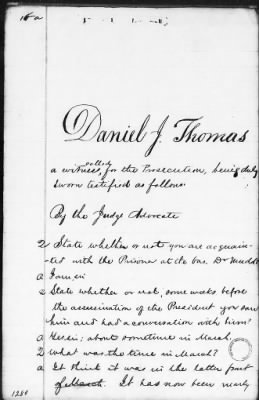 Daniel J. Thomas
a witness called for the Prosecution, being duly
sworn testified as follows
By the Judge Advocate
Q State whether or not you are acquain-
ted with the Prisoner at the bar Dr Mudd?
a I am
Q State whether or not, some weeks before
the assassination of the President you saw
him and had a conversation with him?
a Yes sir; about sometime in March.
Q What was the time in March?
a It think it was in the latter part
of March. It has now been nearly